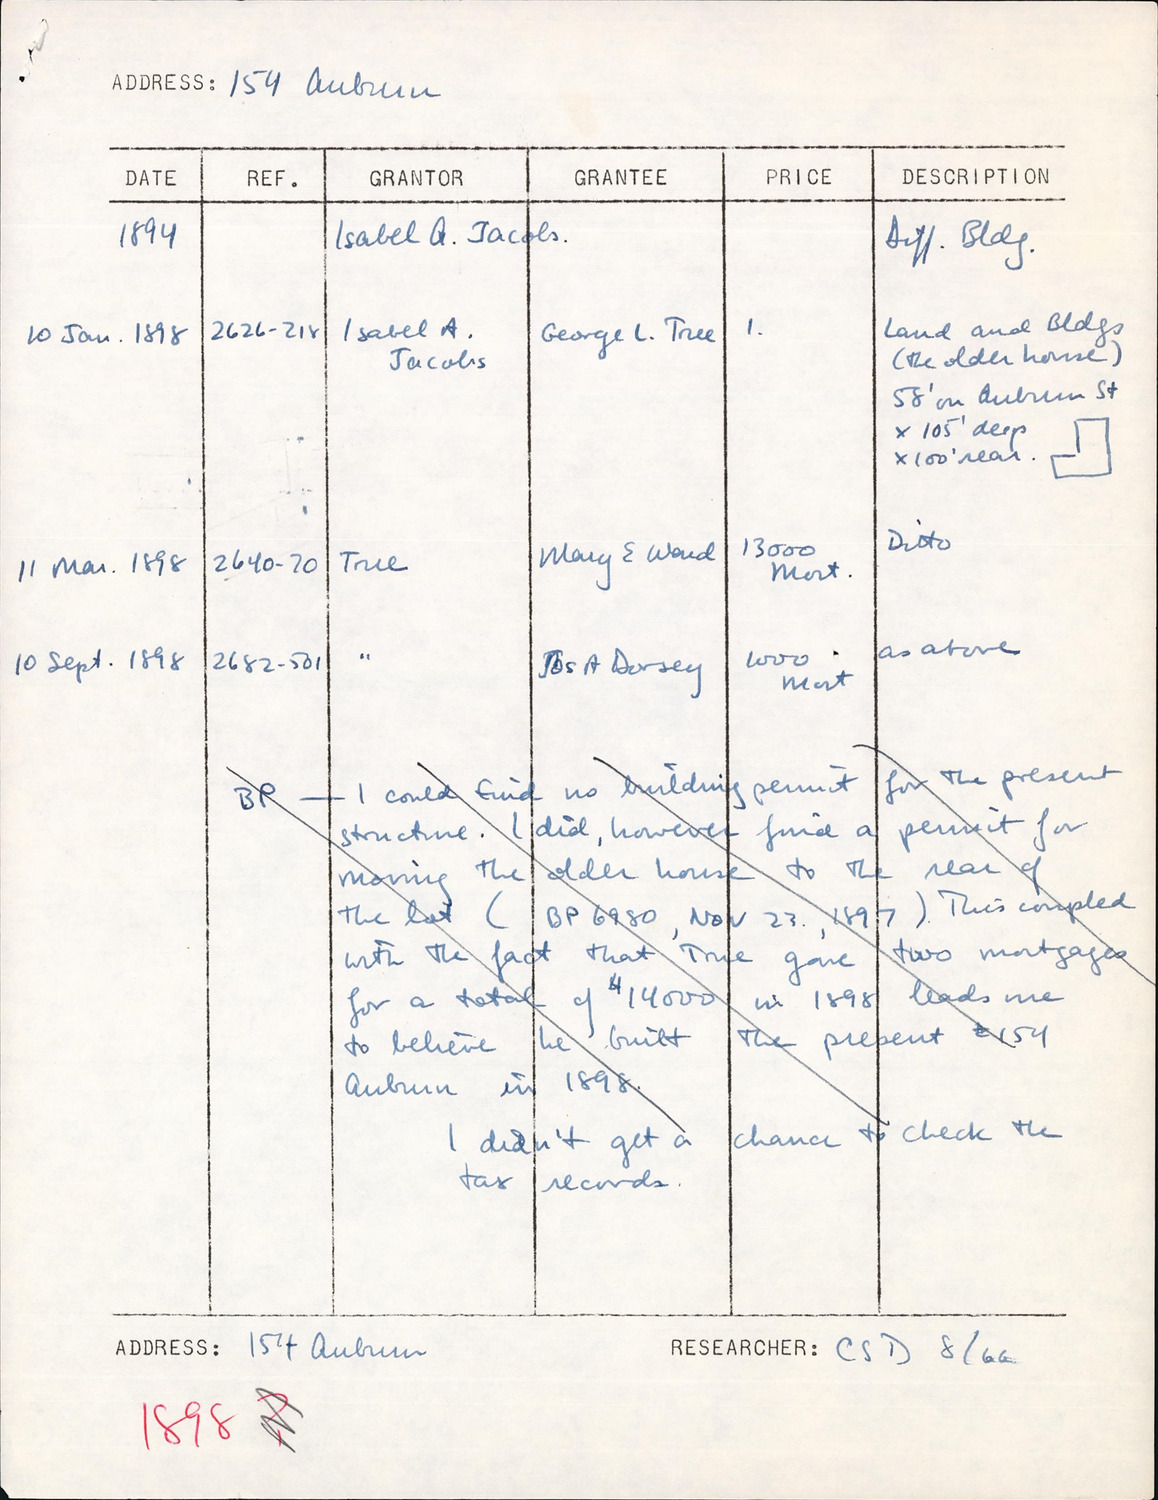 ADDRESS: 154 Auburn
DATE REF. GRANTOR GRANTEE PRICE DESCRIPTION
1894 Isabel A. Jacobs. Diff. Bldg.
10 Jan. 1898 2626-218 Isabel A. George L. True 1. Land and Bldgs
Jacobs (the older house)
58' on Auburn St
x 105' deep
x 100' rear.
11 Mar. 1898 2640-70 True Mary E Ward 13000 Ditto
Mort.
10 Sept. 1898 2682-501 " Jos A Dorsey 1000 as above
Mort
BP — I could find no building permit for the present
structure. I did, however find a permit for
moving the older house to the rear of
the lot ( BP 6980, Nov 23., 1897 ) This coupled
with the fact that True gave two mortgages
for a total of $14000 in 1898 leads me
to believe he built the present 154
Auburn in 1898.
I didn't get a chance to check the
tax records.
ADDRESS: 154 Auburn RESEARCHER: CSD 8/66
1898 ?